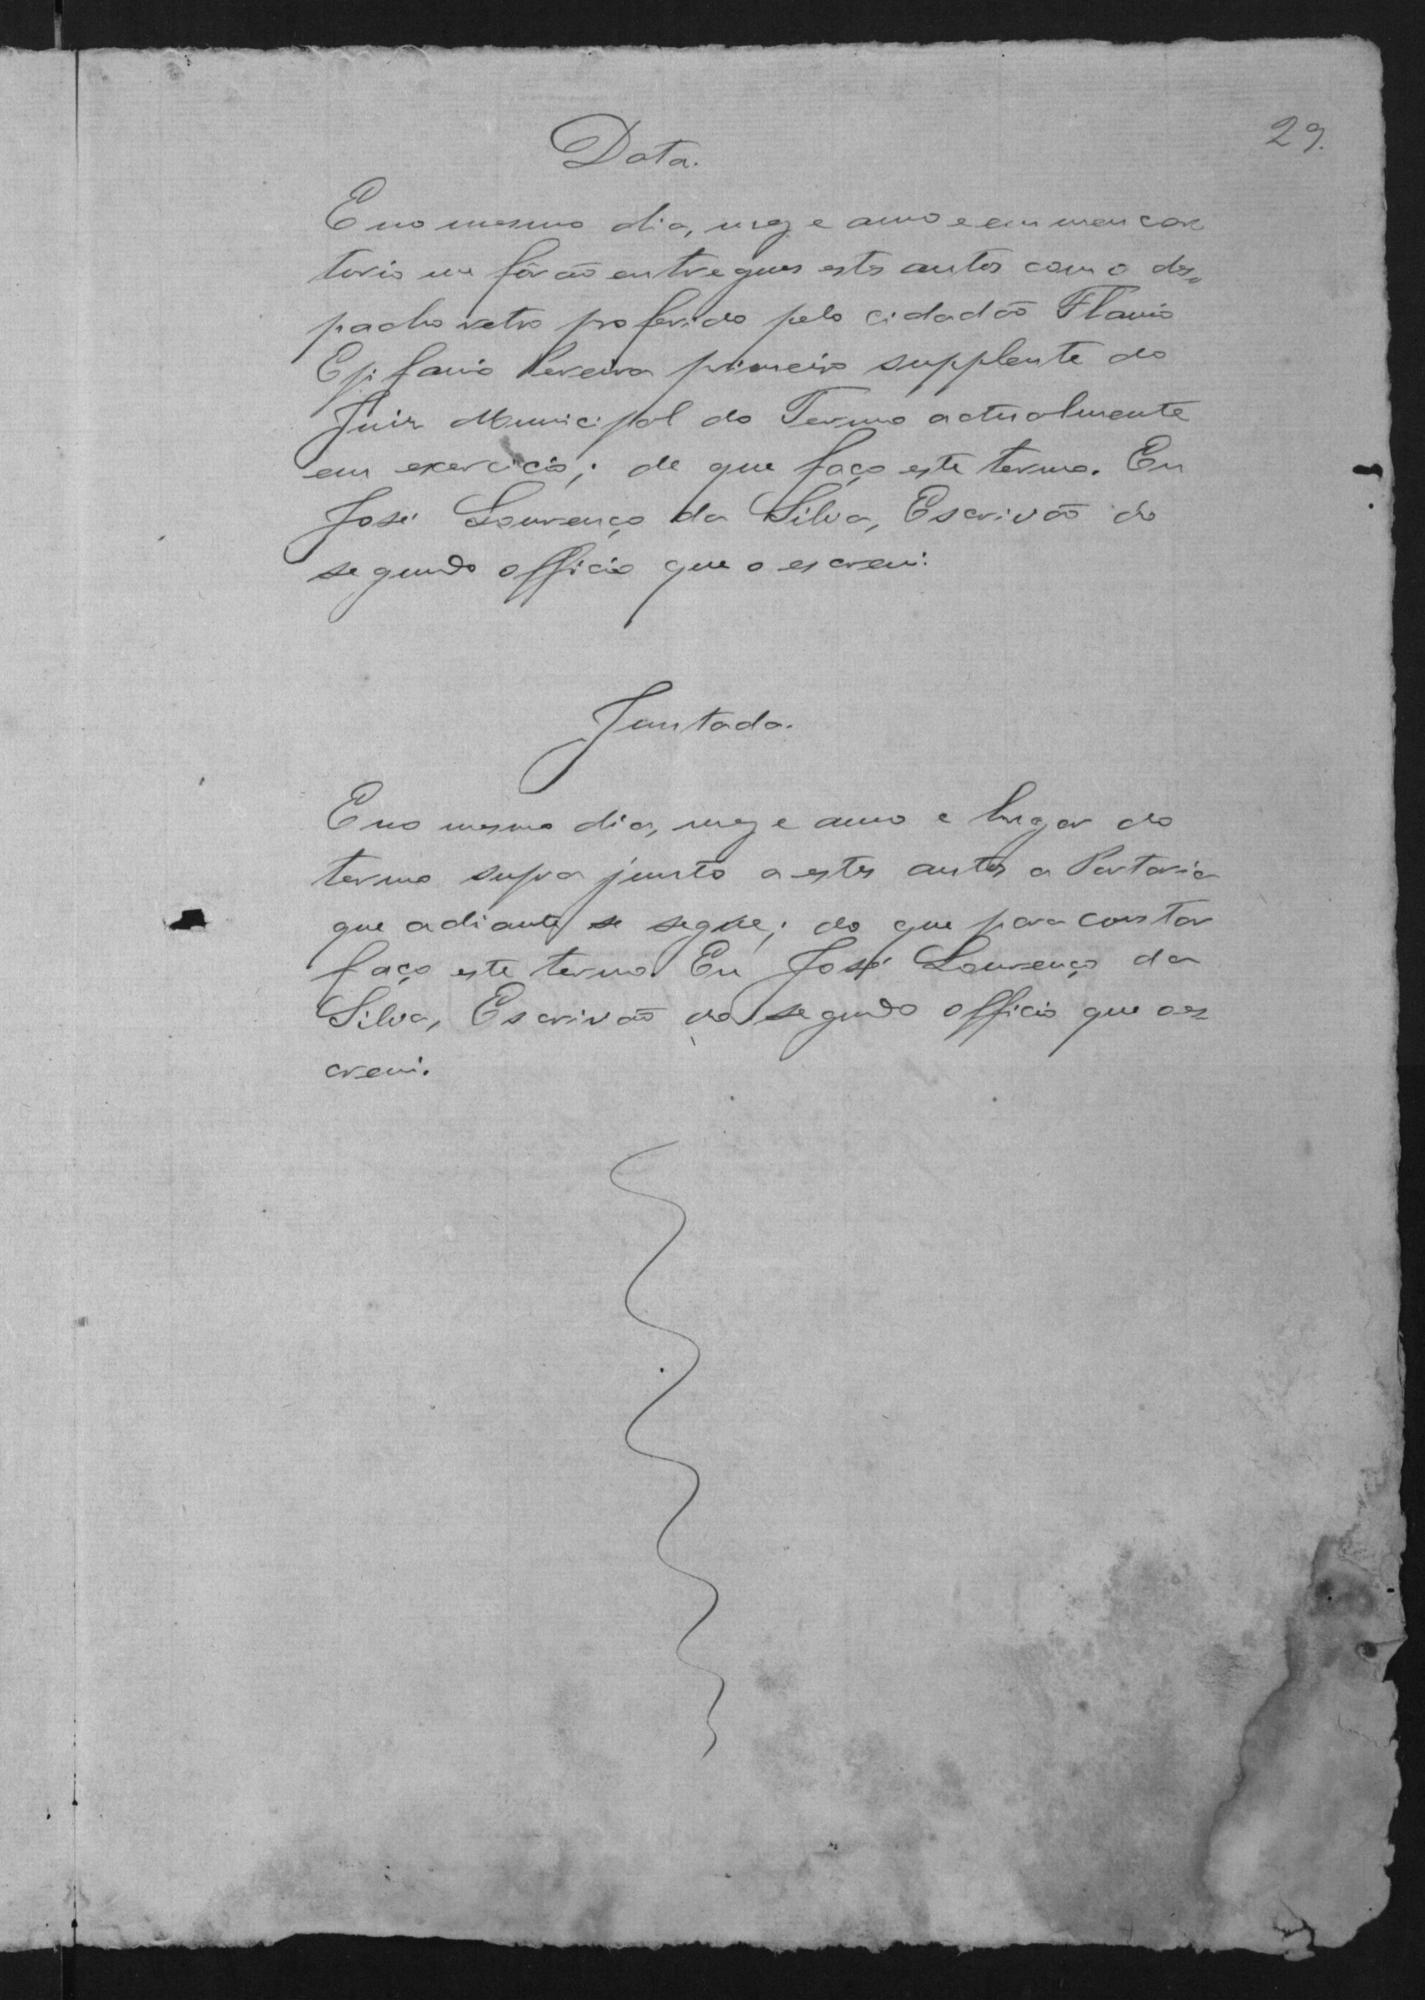 29.
Data.
E no mesmo dia, mez e anno e em meu car
torio me fôrão entregues estes autos com o des
pacho retro proferido pelo cidadão Flavio
Epifanio Pereira primeiro supplente do
Juiz Municipal do Termo actualmente
em exercicio; de que faço este termo. Eu
José Lourenço da Silva, Escrivão do
segundo officio que o escrevi.
Juntada.
E no mesmo dia, mez e anno e lugar do
termo supra junto a estes autos a Portaria
que adiante se segue; do que para constar
faço este termo. Eu José Lourenço da
Silva, Escrivão do segundo officio que o es
crevi.